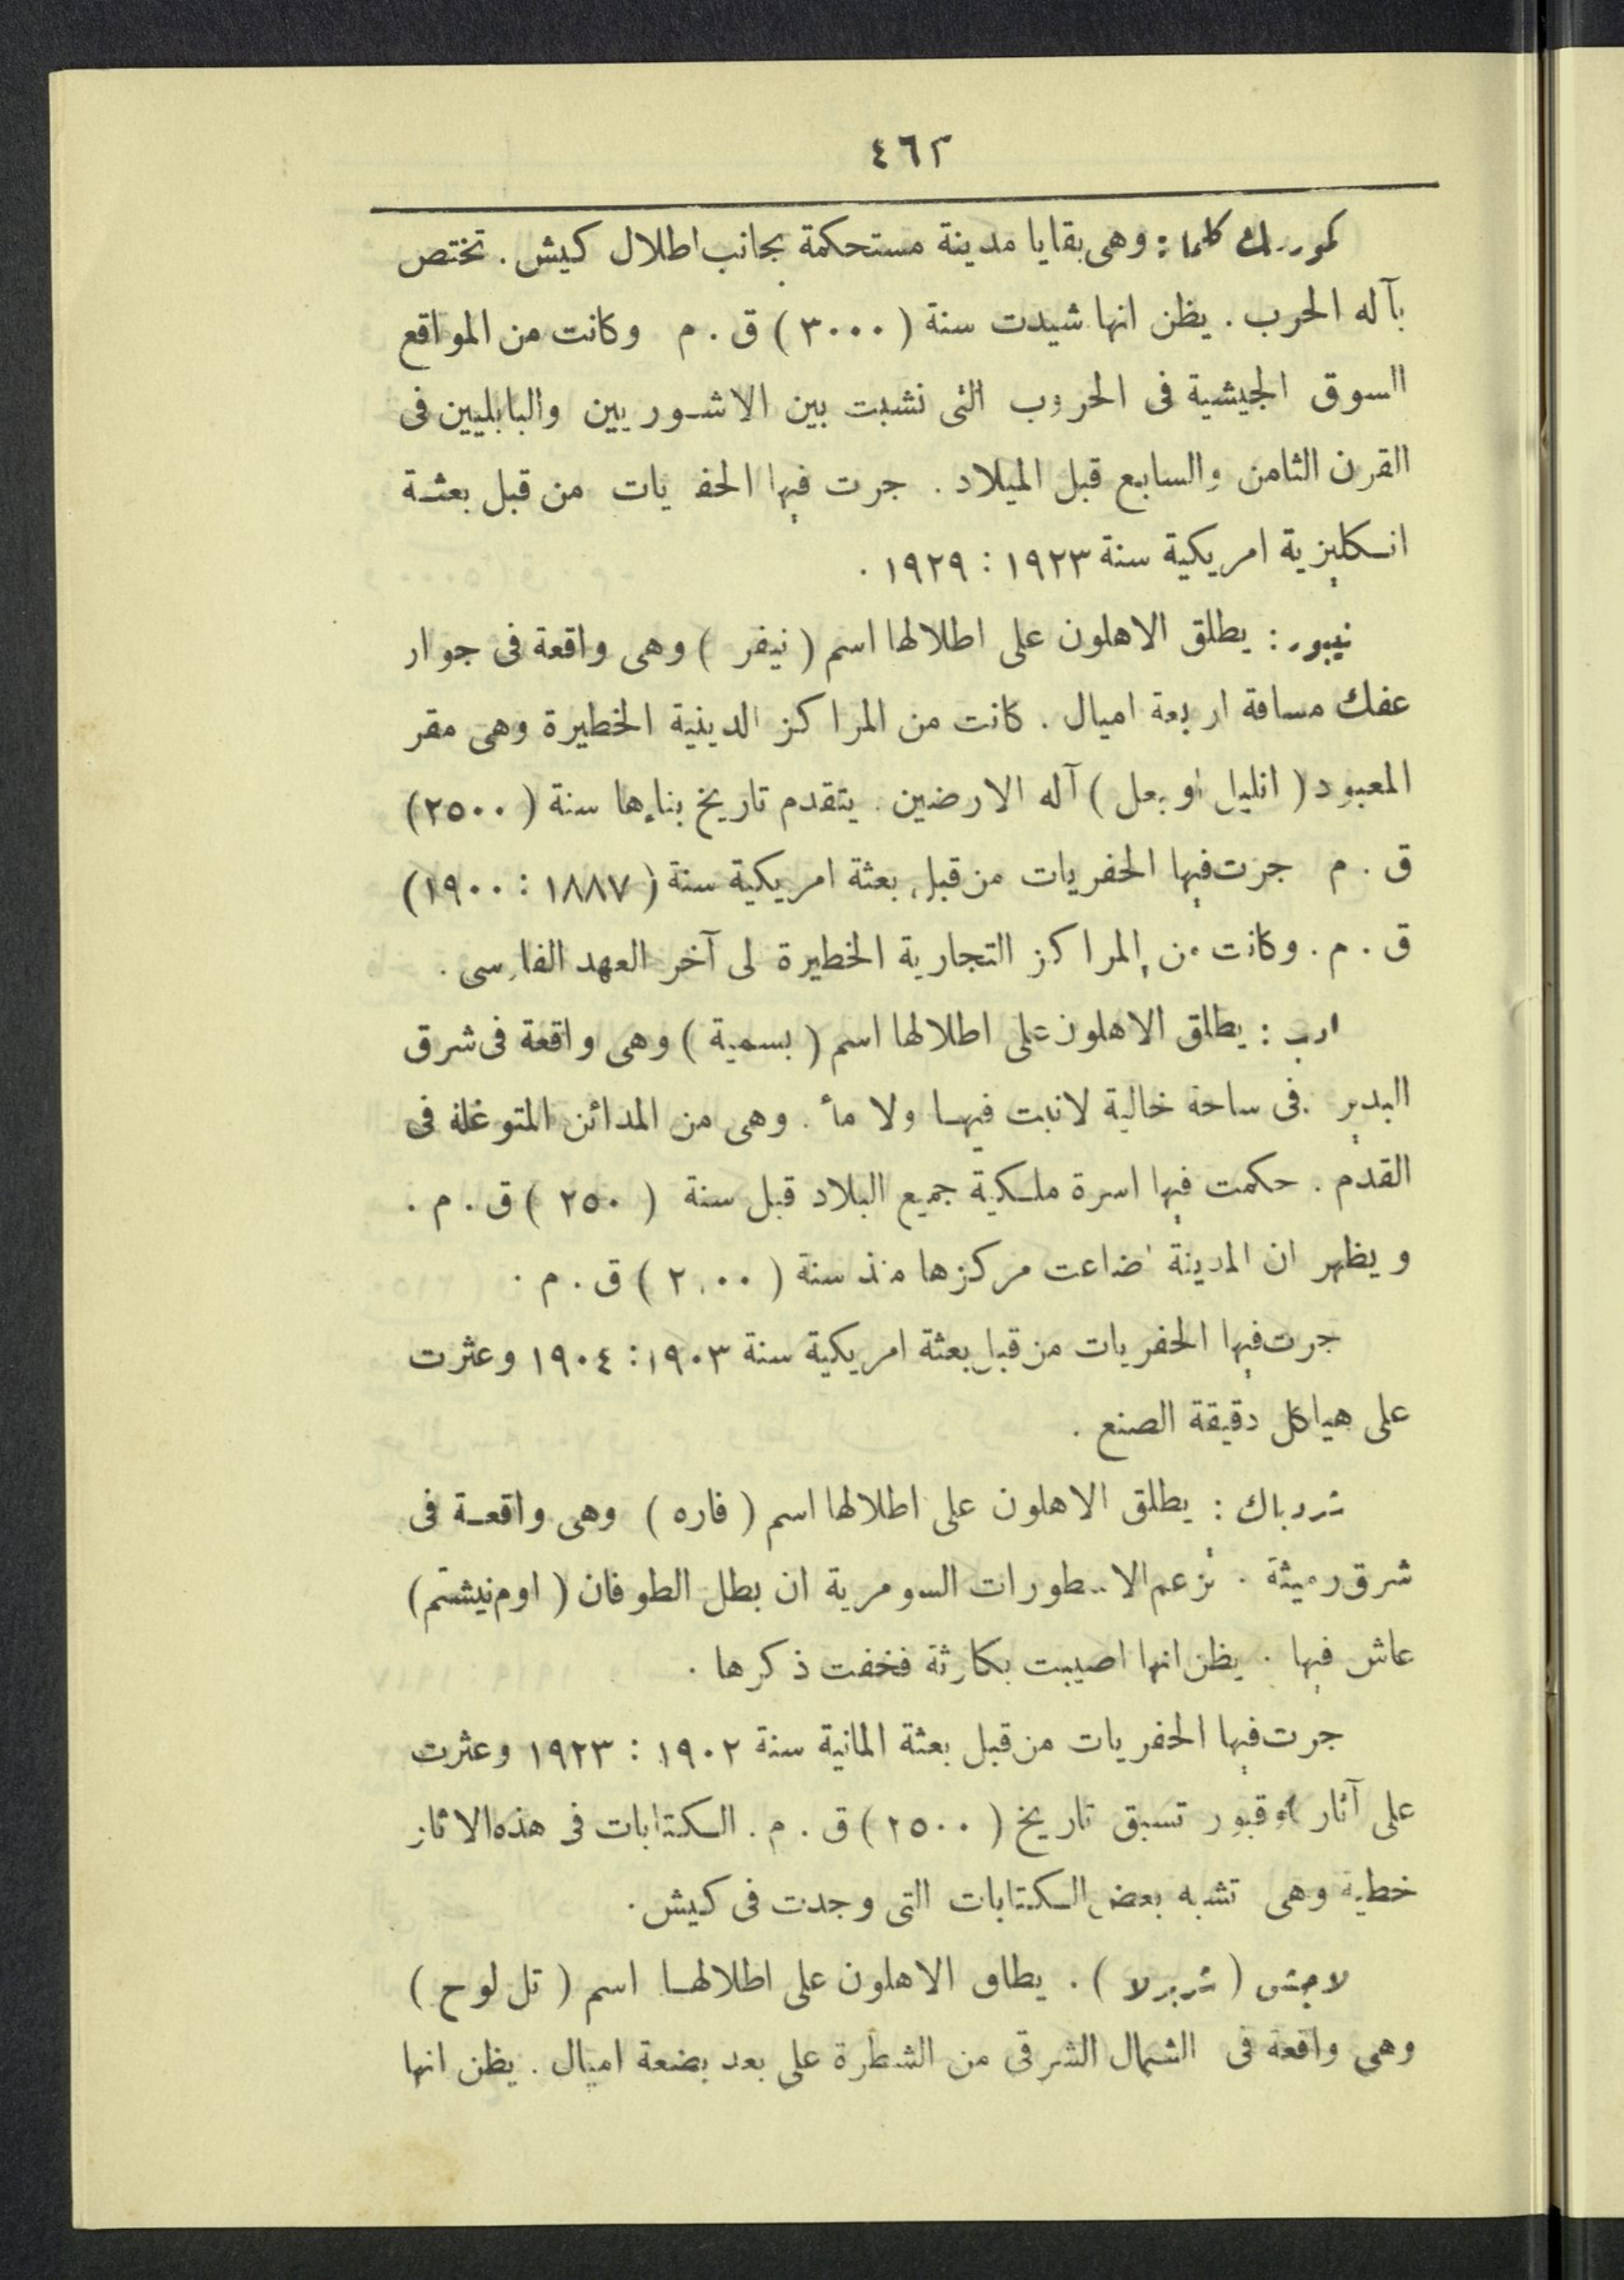 ٤٦٢
وهى بقايا مدينة مستحكمة بجانب اطلال كيش . تختص
بآله الحرب . يظن انها شيدت سنة ( ٣٠٠٠ ) ق . م وكانت من المواقع
السوق الجيشية فى الحروب التى نشبت بين الاشوريين والبابليين فى
القرن الثامن والسابع قبل الميلاد . جرت فيها الحفريات من قبل بعثة
انكليزية امريكية سنة ١٩٢٣ : ١٩٢٩ .
نيبور : يطلق الاهلون على اطلالها اسم ( نيفر ) وهى واقعة فى جوار
عفك مسافة اربعة اميال . كانت من المراكز الدينية الخطيرة وهى مقر
المعبود ( انليل او بعل ) آله الارضين . يتقدم تاريخ بناءها سنة ( ٢٥٠٠ )
ق . م جرت فيها الحفريات من قبل بعثة امريكية سنة ( ١٨٨٧ : ١٩٠٠ )
ق . م . وكانت من المراكز التجارية الخطيرة لى آخر العهد الفارسى .
ادب : يطلق الاهلون على اطلالها اسم ( بسمية ) وهى واقعة فى شرق
البدير . فى ساحة خالية لانبت فيها ولا مأ . وهى من المدائن المتوغلة فى
القدم . حكمت فيها اسرة ملكية جميع البلاد قبل سنة ( ٢٥٠ ) ق . م .
ويظهر ان المدينة اضاعت مركزها منذ سنة ( ٢٠٠٠ ) ق . م .
جرت فيها الحفريات من قبل بعثة امريكية سنة ١٩٠٣ : ١٩٠٤ وعثرت
على هياكل دقيقة الصنع .
شردباك : يطلق الاهلون على اطلالها اسم ( فاره ) وهى واقعة فى
شرق رميثة . تزعم الاسطورات السومرية ان بطل الطوفان ( اوم نيشتم )
عاش فيها . يظن انها اصيبت بكارثة فخفت ذكرها .
جرت فيها الحفريات من قبل بعثة المانية سنة ١٩٠٢ : ١٩٢٣ وعثرت
على آثار او قبور تسبق تاريخ ( ٢٥٠٠ ) ق . م . الكتابات فى هذه الاثار
خطية وهى تشبه بعض الكتابات التى وجدت فى كيش .
لاجش ( شربرلا ) . يطلق الاهلون على اطلالها اسم ( تل لوح )
وهى واقعة فى الشمال الشرقى من الشطرة على بعد بضعة اميال . يظن انها